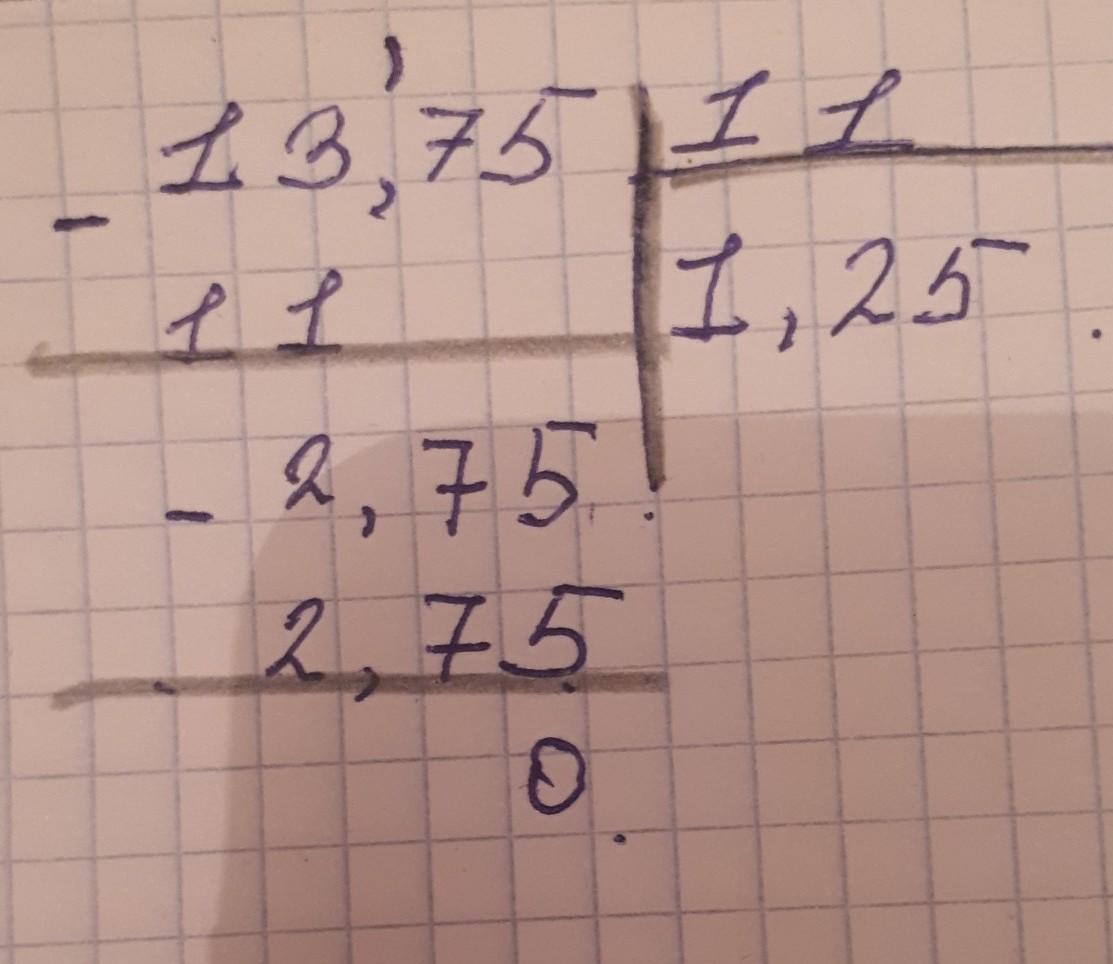 13,75 11
- 11 1,25
- 2,75
2,75
0